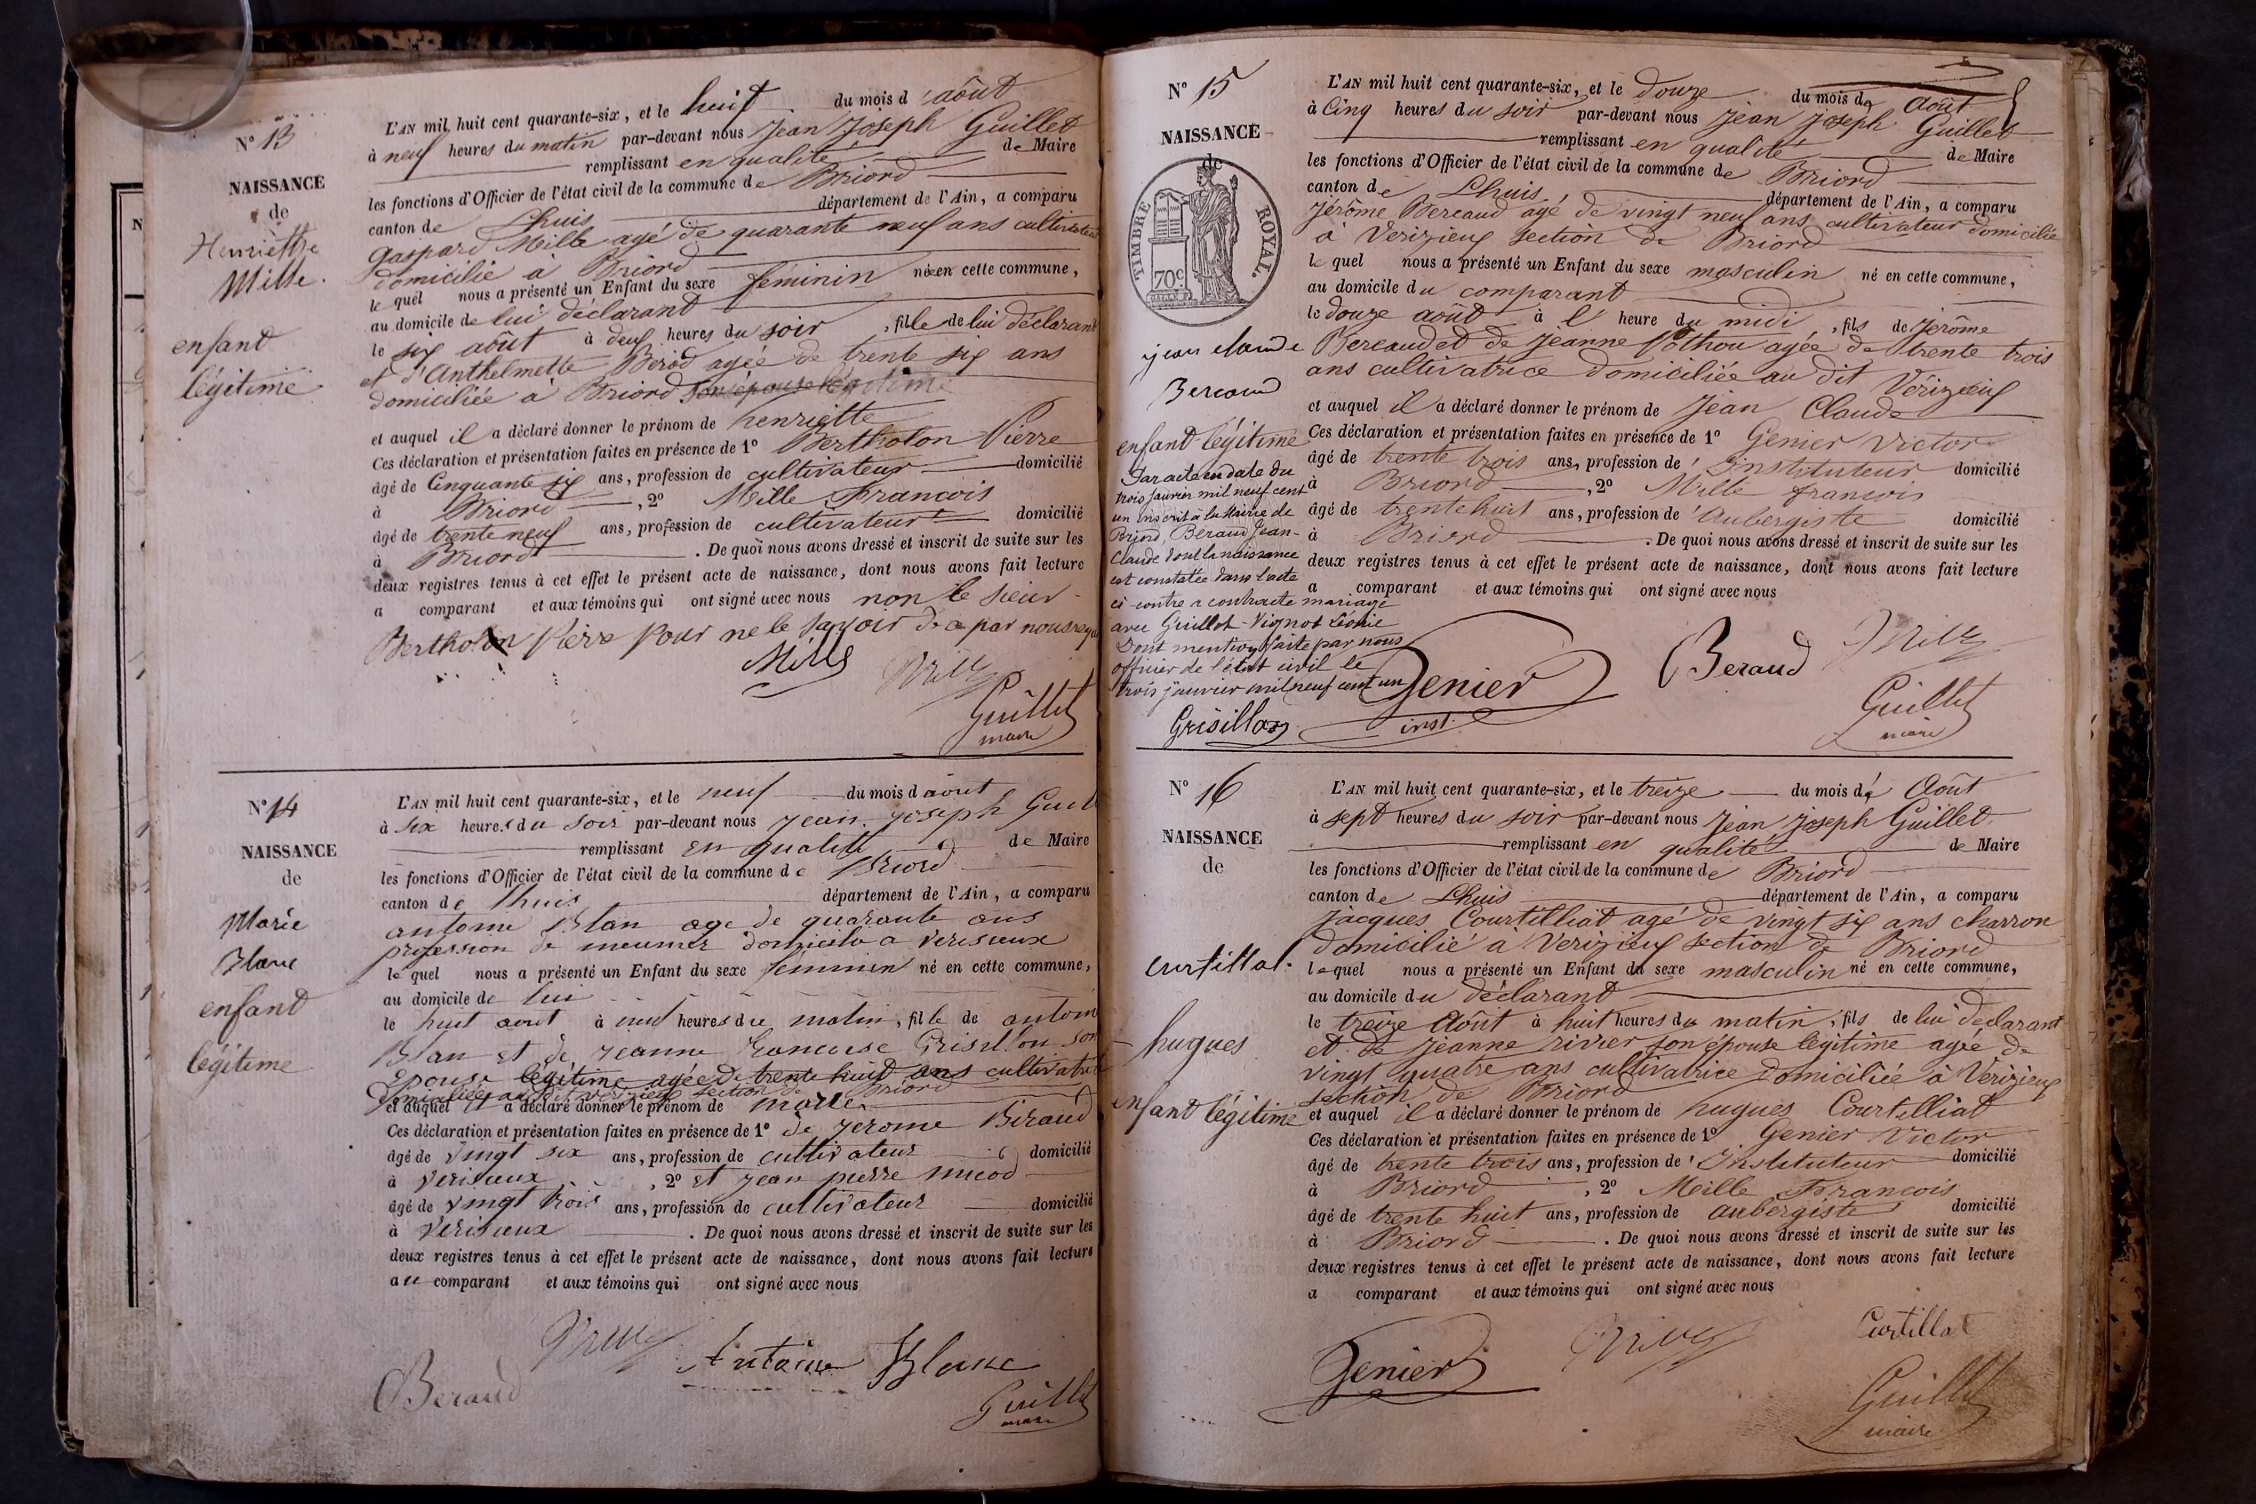 N° 13
NAISSANCE
de
Henriette
Mille.
enfant
légitime
L'AN mil huit cent quarante-six, et le huit du mois d'août
à neuf heures du matin par-devant nous Jean Joseph Guillet
remplissant en qualité de Maire
les fonctions d'Officier de l'état civil de la commune de Briord
canton de Lhuis département de l'Ain, a comparu
Gaspard Mille agé de quarante neuf ans cultivateur
domicilié à Briord
le quel nous a présenté un Enfant du sexe féminin né en cette commune,
au domicile de lui déclarant
le six août à deux heures du soir, fille de lui déclarant
et d'Anthelmette Beriod agée de trente six ans
domiciliée à Briord son épouse légitime
et auquel il a déclaré donner le prénom de henriette
Ces déclaration et présentation faites en présence de 1° Bertholon Pierre
âgé de Cinquante six ans, profession de cultivateur domicilié
à Briord, 2° Mille Francois
âgé de trente neuf ans, profession de cultivateur domicilié
à Briord. De quoi nous avons dressé et inscrit de suite sur les
deux registres tenus à cet effet le présent acte de naissance, dont nous avons fait lecture
a comparant et aux témoins qui ont signé avec nous non le sieur
Bertholon Pierre pour ne le savoir de ce par nous
Mille
Guillet
maire
N° 14
NAISSANCE
de
Marie
Blanc
enfant
légitime
L'AN mil huit cent quarante-six, et le neuf du mois d'août
à six heures du soir par-devant nous Jean Joseph
remplissant en qualité de Maire
les fonctions d'Officier de l'état civil de la commune de Briord
canton de Lhuis département de l'Ain, a comparu
antoine Blan age de quarante ans
profession de meunier domicilié a Verisieux
le quel nous a présenté un Enfant du sexe féminin né en cette commune,
au domicile de lui
le huit aout à neuf heures du matin, fille de antoine
Blan et de Jeanne francoise Grisillon son
épouse légitime agée de trente huit ans cultivatrice
domiciliée au dit Verizieux section de Briord
et auquel il a déclaré donner le prénom de marie
Ces déclaration et présentation faites en présence de 1° de Jerome Béraud
âgé de vingt six ans, profession de cultivateur domicilié
à Verisieux, 2° et Jean pierre micod
âgé de vingt trois ans, profession de cultivateur domicilié
à Verisieux. De quoi nous avons dressé et inscrit de suite sur les
deux registres tenus à cet effet le présent acte de naissance, dont nous avons fait lecture
au comparant et aux témoins qui ont signé avec nous
Antoine Blanc
Beraud
Guillet
maire
N° 15
NAISSANCE
de
TIMBRE ROYAL.
70c
jean claude
Bereaud
enfant légitime
Par acte en date du
trois janvier mil neuf cent
un inscrit à la Mairie de
Briord, Béraud Jean-
Claude dont la naissance
est constatée dans l'acte
ci-contre a contracté mariage
avec Guillot-Vignot Léonie
Dont mention faite par nous
officier de l'état civil le
trois janvier mil neuf cent un
Grisillon
L'AN mil huit cent quarante-six, et le douze du mois de Août
à Cinq heures du soir par-devant nous Jean Joseph Guillet
remplissant en qualité de Maire
les fonctions d'Officier de l'état civil de la commune de Briord
canton de Lhuis département de l'Ain, a comparu
Jérôme Bereaud agé de vingt neuf ans cultivateur domicilié
à Verizieux section de Briord
le quel nous a présenté un Enfant du sexe masculin né en cette commune,
au domicile du comparant
le douze août à l' heure du midi, fils de Jérôme
Bereaud et de Jeanne Pothou agée de trente trois
ans cultivatrice domiciliée au dit Vérizieux
et auquel il a déclaré donner le prénom de Jean Claude
Ces déclaration et présentation faites en présence de 1° Genier Victor
âgé de trente trois ans, profession d'instituteur domicilié
à Briord, 2° Mille francois
âgé de trente huit ans, profession d'Aubergiste domicilié
à Briord. De quoi nous avons dressé et inscrit de suite sur les
deux registres tenus à cet effet le présent acte de naissance, dont nous avons fait lecture
a comparant et aux témoins qui ont signé avec nous
Genier
inst.
Beraud
Guillet
maire
N° 16
NAISSANCE
de
Curtillat.
hugues
enfant légitime
L'AN mil huit cent quarante-six, et le treize du mois d'Août
à sept heures du soir par-devant nous Jean Joseph Guillet
remplissant en qualité de Maire
les fonctions d'Officier de l'état civil de la commune de Briord
canton de Lhuis département de l'Ain, a comparu
Jacques Courtilliat agé de vingt six ans charron
domicilié à Verizieux section de Briord
le quel nous a présenté un Enfant du sexe masculin né en cette commune,
au domicile du déclarant
le treize Août à huit heures du matin, fils de lui déclarant
et de Jeanne rivier son épouse légitime agée de
vingt quatre ans cultivatrice domiciliée à Verizieux
section de Briord
et auquel il a déclaré donner le prénom de hugues Courtilliat
Ces déclaration et présentation faites en présence de 1° Genier Victor
âgé de trente trois ans, profession d'Instituteur domicilié
à Briord, 2° Meille Francois
âgé de trente huit ans, profession de aubergiste domicilié
à Briord. De quoi nous avons dressé et inscrit de suite sur les
deux registres tenus à cet effet le présent acte de naissance, dont nous avons fait lecture
a comparant et aux témoins qui ont signé avec nous
Curtillat
Genier
Guillet
maire